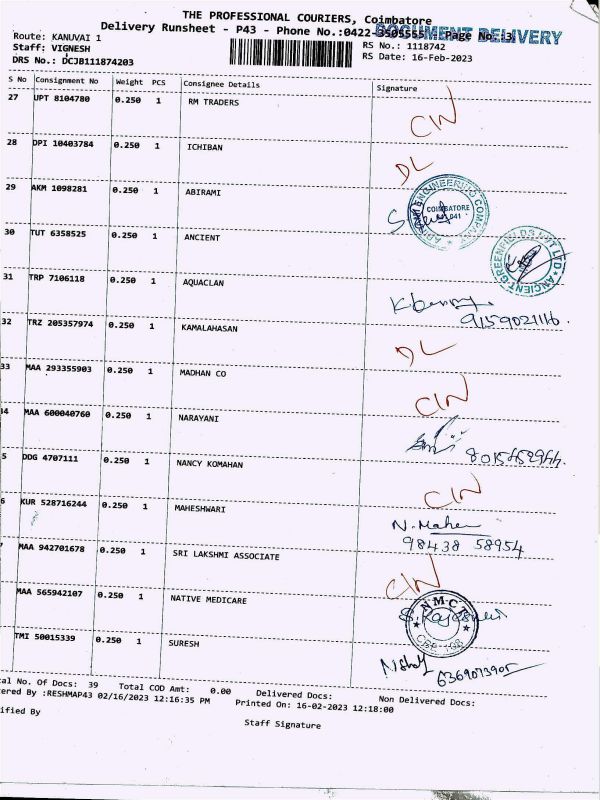 THE PROFESSIONAL COURIERS, Coimbatore
Delivery Runsheet - P43 - Phone No.:0422-3505555 Page No.:3
DOCUMENT DELIVERY
Route: KANUVAI 1
RS No.: 1118742
Staff: VIGNESH
RS Date: 16-Feb-2023
DRS No.: DCJB111874203
S No Consignment No Weight PCS Consignee Details Signature
27 UPT 8104780 0.250 1 RM TRADERS CIN
28 DPI 10403784 0.250 1 ICHIBAN DL
29 AKM 1098281 0.250 1 ABIRAMI
ENGINEERING COMPANY
COIMBATORE
30 TUT 6358525 0.250 1 ANCIENT
ANCIENT GREENFIELDS PVT LTD
31 TRP 7106118 0.250 1 AQUACLAN
9159021116.
32 TRZ 205357974 0.250 1 KAMALAHASAN DL
33 MAA 293355903 0.250 1 MADHAN CO CIN
34 MAA 600040760 0.250 1 NARAYANI
5 DDG 4707111 0.250 1 NANCY KOMAHAN CIN
6 KUR 528716244 0.250 1 MAHESHWARI N. Mahen
98438 58954
7 MAA 942701678 0.250 1 SRI LAKSHMI ASSOCIATE CIN
MAA 565942107 0.250 1 NATIVE MEDICARE
NMCT
TMI 50015339 0.250 1 SURESH
6369073905
al No. Of Docs: 39 Total COD Amt: 0.00 Delivered Docs: Non Delivered Docs:
ered By :RESHMAP43 02/16/2023 12:16:35 PM Printed On: 16-02-2023 12:18:00
ified By
Staff Signature